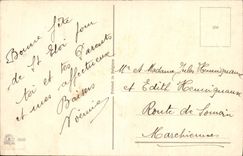 Bonne fête
de St Eloi pour
toi et tes Parents
et mes affectueux
Baisers
Noémie
Mr et Madame Jules Hennequeaux
et Edith Hennequeaux
Route de Somain
Marchiennes